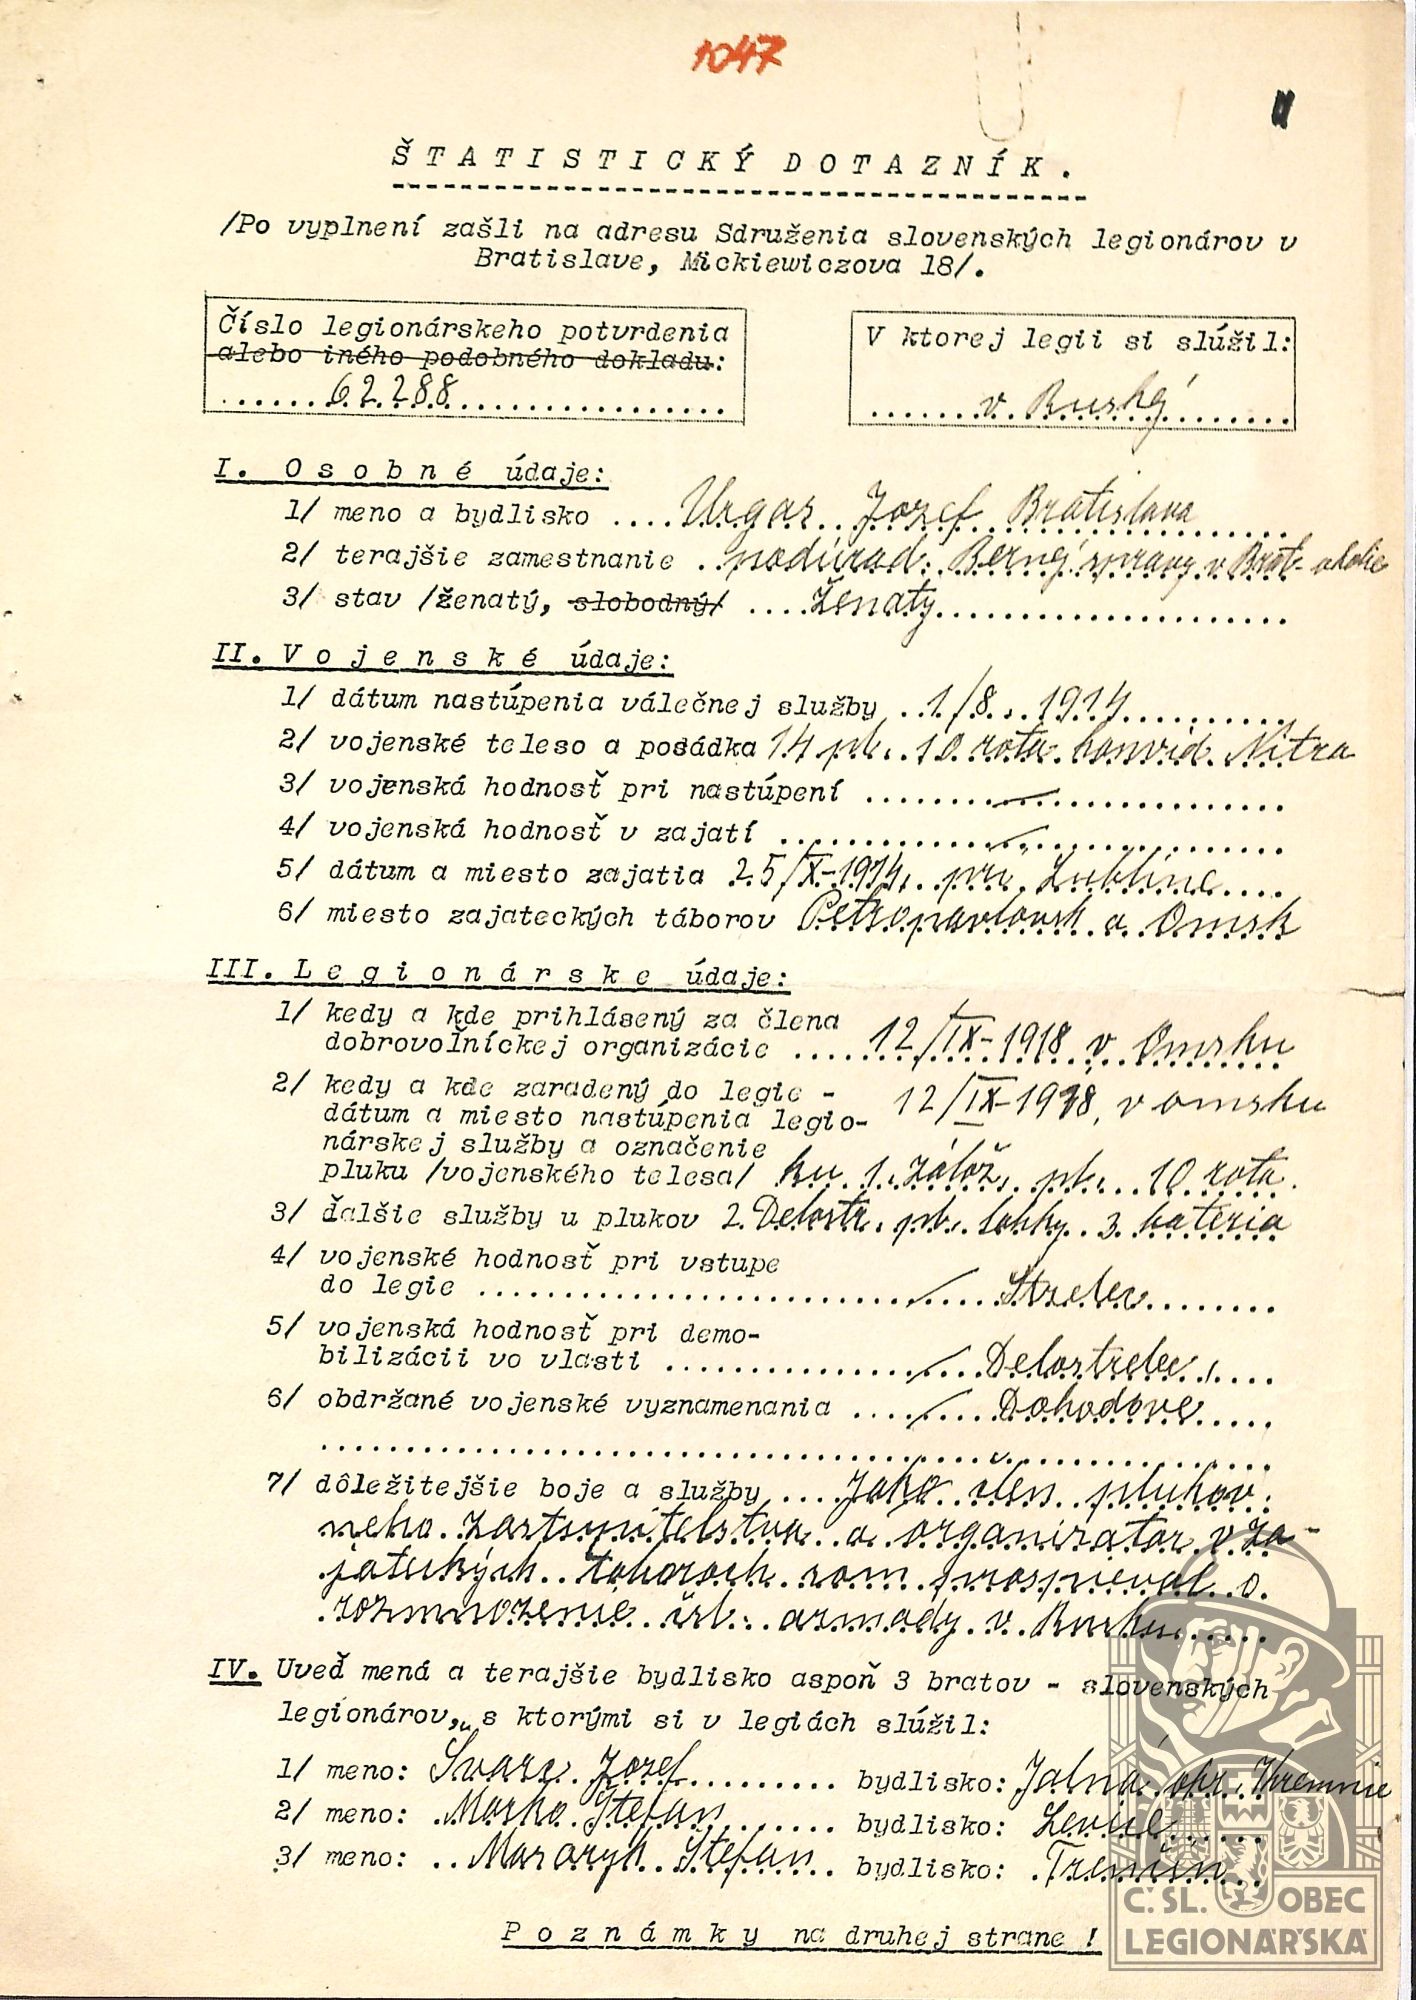 1047
ŠTATISTICKÝ DOTAZNÍK.
/Po vyplnení zašli na adresu Sdruženia slovenských legionárov v
Bratislave, Mickiewiczova 18/.
Číslo legionárskeho potvrdenia
alebo iného podobného dokladu:
62288
V ktorej legii si slúžil:
v Ruskej
I. Osobné údaje:
1/ meno a bydlisko .... Urgas Jozef Bratislava
2/ terajšie zamestnanie .. podúrad. Berný správy v Brat-okolie
3/ stav /ženatý, slobodný/ .... Ženatý
II. Vojenské údaje:
1/ dátum nastúpenia válečnej služby .. 1/8. 1914
2/ vojenské teleso a posádka 14 pl. 10 rota honvid. Nitra
3/ vojenská hodnosť pri nastúpení
4/ vojenská hodnosť v zajatí
5/ dátum a miesto zajatia 25/IX-1914. pri Lubline
6/ miesto zajateckých táborov Petropavlovsk a Omsk
III. Legionárske údaje:
1/ kedy a kde prihlásený za člena
dobrovoľníckej organizácie .... 12/IX-1918 v Omsku
2/ kedy a kde zaradený do legie - 12/IX-1918, v omsku
dátum a miesto nastúpenia legio-
nárskej služby a označenie
pluku /vojenského telesa/ ku 1. zálož. pl. 10 rota.
3/ ďalšie služby u plukov 2. Delostr. pl. lahky 3. bateria
4/ vojenské hodnosť pri vstupe
do legie .... Strelec
5/ vojenská hodnosť pri demo-
bilizácii vo vlasti .... Delostrelec
6/ obdržané vojenské vyznamenania .... Dohodove
7/ dôležitejšie boje a služby .... Jako člen plukov
neho zastupitelstva a organizator v za-
jateckých taboroch som prospieval o
rozmnoženie čsl. armady v Rusku
IV. Uveď mená a terajšie bydlisko aspoň 3 bratov - slovenských
legionárov, s ktorými si v legiách slúžil:
1/ meno: Švarc Jozef bydlisko: Jalná, okr. Kremnic
2/ meno: Marko Štefan bydlisko: Levice
3/ meno: .. Masaryk Štefan bydlisko: Trenčín
Poznámky na druhej strane !
Č. SL. OBEC
LEGIONÁŘSKÁ